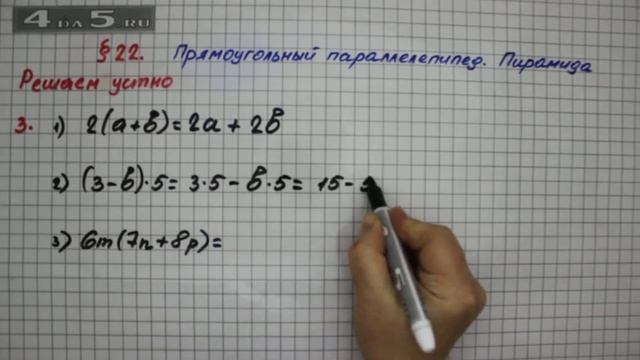 4 DA 5 RU
§ 22. Прямоугольный параллелепипед. Пирамида
Решаем устно
3. 1) 2(a+b)=2a+2b
2) (3-b)·5= 3·5-b·5= 15-5
3) 6m(7n+8p)=